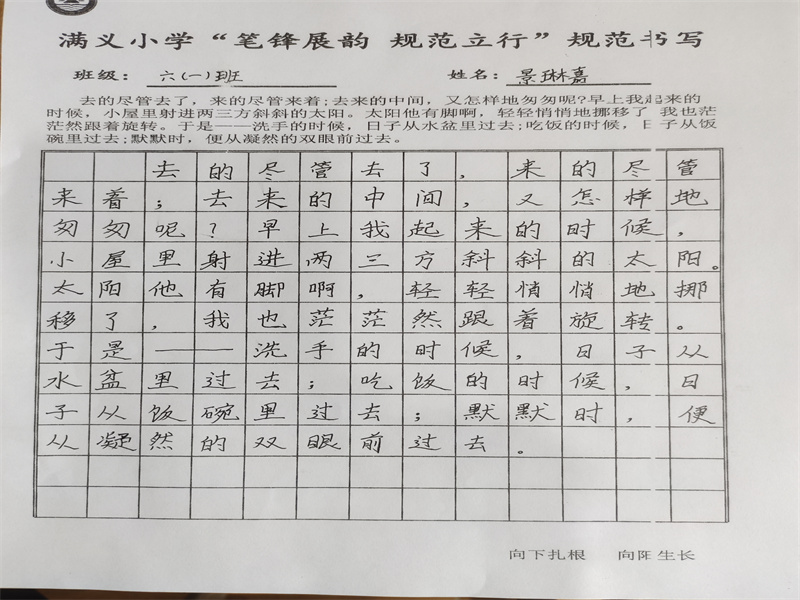 满义小学“笔锋展韵 规范立行”规范书写
班级：六(一)班 姓名：景琳嘉
去的尽管去了，来的尽管来着;去来的中间，又怎样地匆匆呢?早上我起来的
时候，小屋里射进两三方斜斜的太阳。太阳他有脚啊，轻轻悄悄地挪移了 我也茫
茫然跟着旋转。于是——洗手的时候，日子从水盆里过去;吃饭的时候，日子从饭
碗里过去;默默时，便从凝然的双眼前过去。
去的尽管去了，来的尽管
来着；去来的中间，又怎样地
匆匆呢？早上我起来的时候，
小屋里射进两三方斜斜的太阳。
太阳他有脚啊，轻轻悄悄地挪
移了，我也茫茫然跟着旋转。
于是——洗手的时候，日子从
水盆里过去；吃饭的时候，日
子从饭碗里过去；默默时，便
从凝然的双眼前过去。
向下扎根 向阳生长